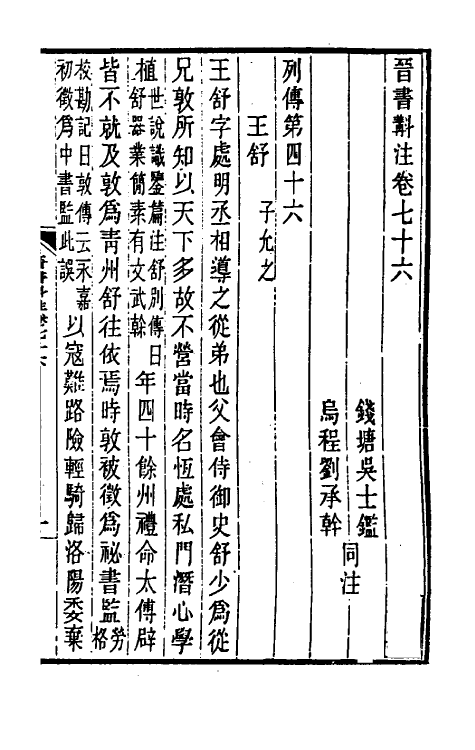 晉書斠注卷七十六
錢塘吳士鑑
烏程劉承幹
同注
列傳第四十六
王舒 子允之
王舒字處明丞相導之從弟也父會侍御史舒少爲從
兄敦所知以天下多故不營當時名恆處私門潛心學
植世說識鑒篇注舒別傳曰舒器業簡素有文武幹年四十餘州禮命太傅辟
皆不就及敦爲靑州舒往依焉時敦被徵爲祕書監勞格
校勘記曰敦傳云永嘉初徵爲中書監此誤以寇難路險輕騎歸洛陽委棄